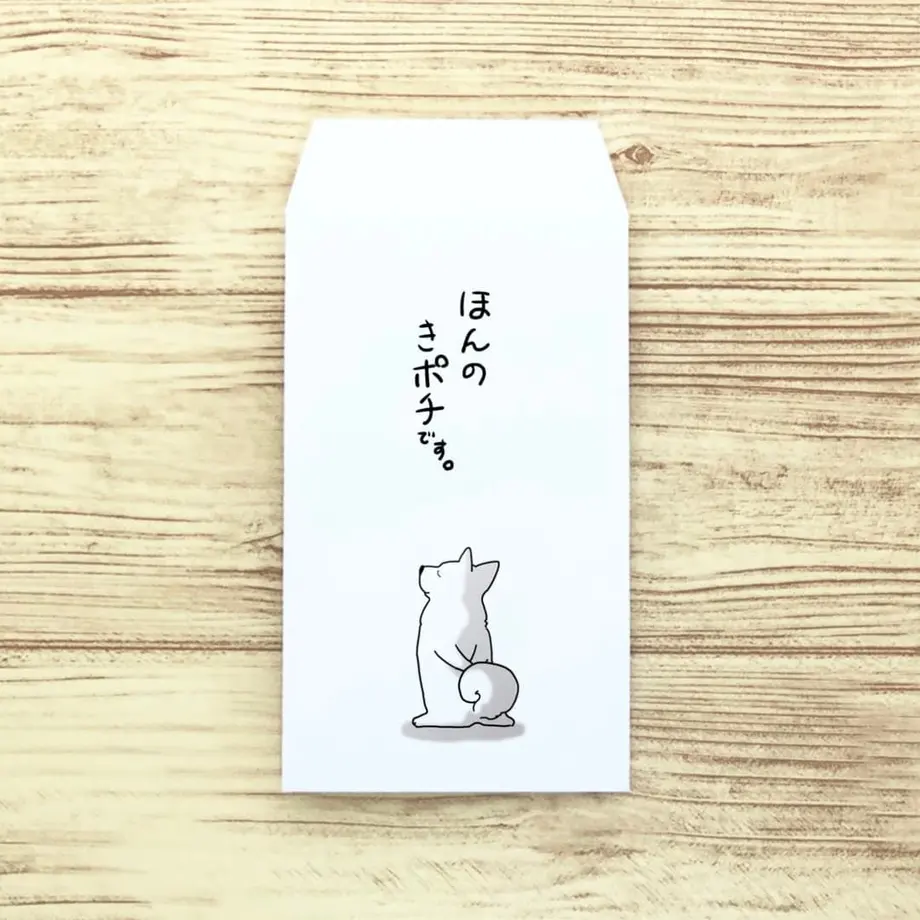 ほんの
きポチです。